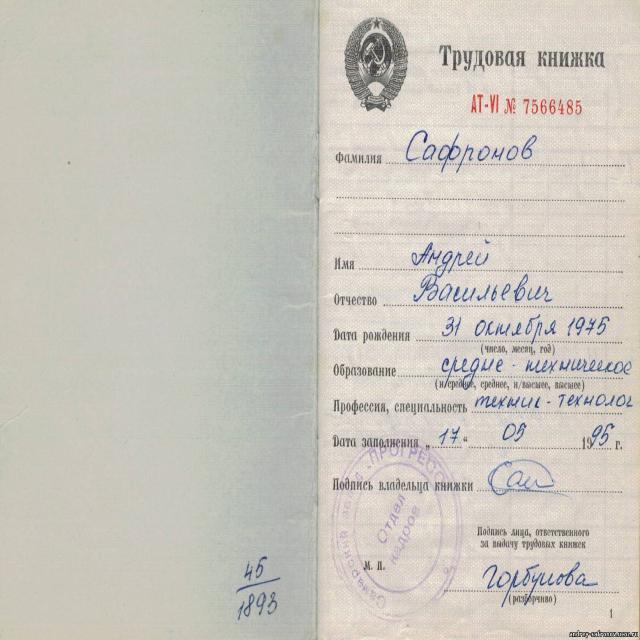 Трудовая книжка
АТ-VI № 7566485
Фамилия Сафронов
Имя Андрей
Отчество Васильевич
Дата рождения 31 октября 1975
(число, месяц, год)
Образование средне-техническое
(н/среднее, среднее, н/высшее, высшее)
Профессия, специальность техник-технолог
Дата заполнения „17“ 05 1995 г.
Подпись владельца книжки
Подпись лица, ответственного
за выдачу трудовых книжек
М. П.
Горбунова
(разборчиво)
1
ПРОГРЕСС
Самарский завод
Отдел
кадров
45
1893